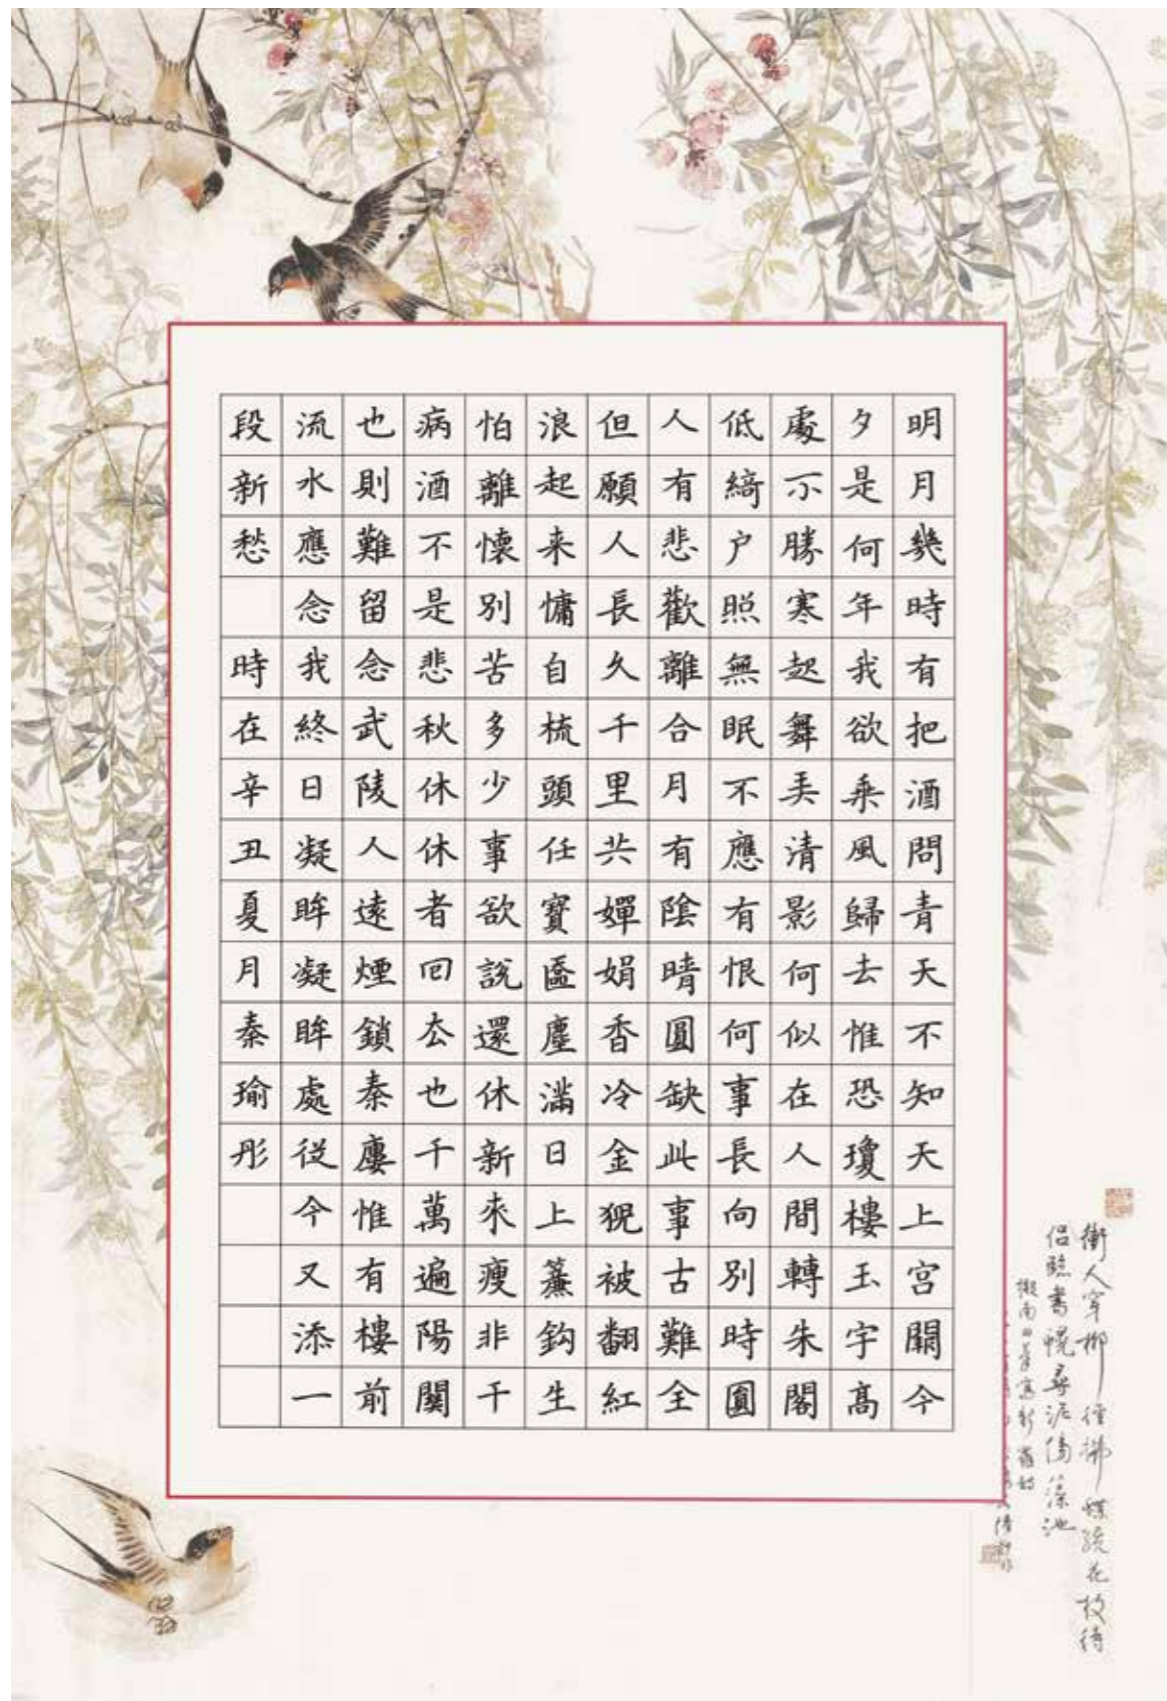 明月幾時有把酒問青天不知天上宫闕今
夕是何年我欲乘風歸去惟恐瓊樓玉宇高
處不勝寒起舞弄清影何似在人間轉朱閣
低綺户照無眠不應有恨何事長向別時圓
人有悲歡離合月有陰晴圓缺此事古難全
但願人長久千里共嬋娟香冷金猊被翻紅
浪起来慵自梳頭任寶匳塵滿日上簾鈎生
怕離懷別苦多少事欲說還休新來瘦非干
病酒不是悲秋休休者回去也千萬遍陽關
也則難留念武陵人遠煙鎖秦廔惟有樓前
流水應念我終日凝眸凝眸處從今又添一
段新愁 時在辛丑夏月秦瑜彤
衝人穿柳徑拂蝶繞花枝待
侣臨書幌尋泥傍藻池